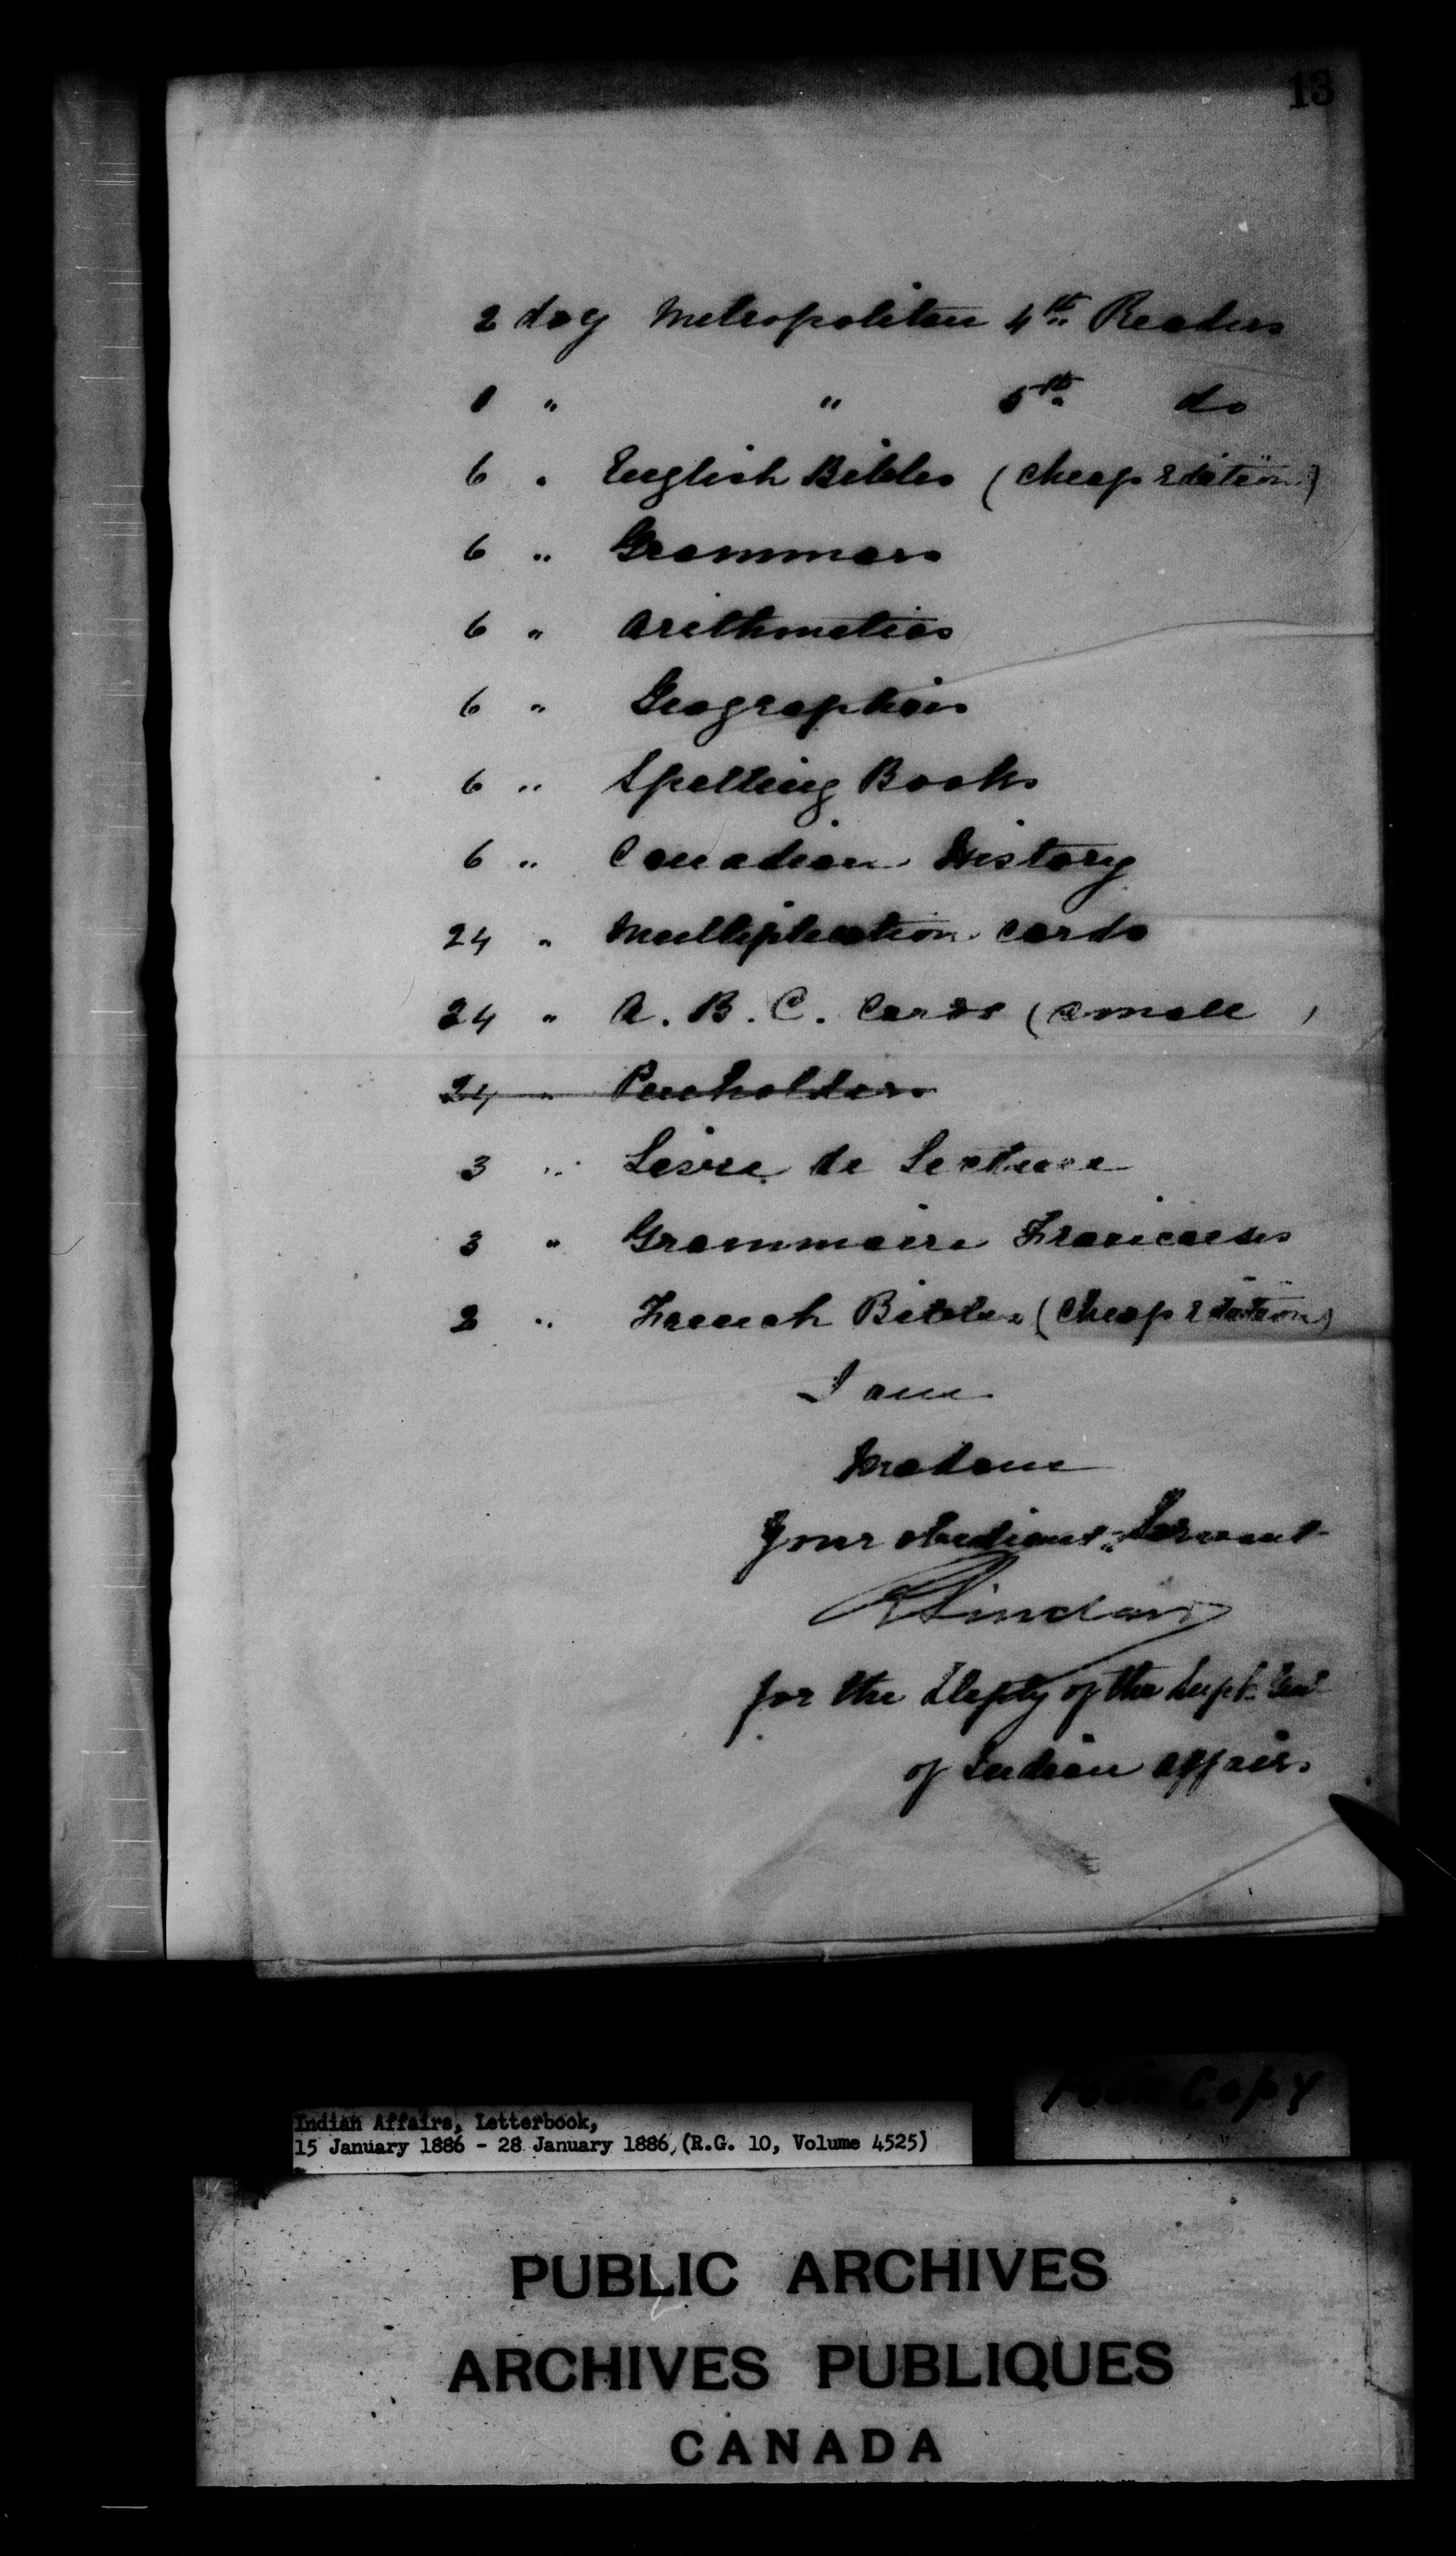 13
2 doz Metropolitan 4th Readers
1 " " 5th do
6 " English Bibles (Cheap Edition)
6 " Grammars
6 " Arithmetics
6 " Geographies
6 " Spelling Books
6 " Canadian History
24 " Multiplication cards
24 " A. B. C. Cards (small)
24 " Penholders
3 " Livre de Lecture
3 " Grammaire Francaises
2 " French Bibles (Cheap Edition)
I am
Madam
Your obedient Servant
R Sinclair
for the Depty of the Supt. Genl
of Indian Affairs
Poor Copy
Indian Affairs, Letterbook,
15 January 1886 - 28 January 1886, (R.G. 10, Volume 4525)
PUBLIC ARCHIVES
ARCHIVES PUBLIQUES
CANADA